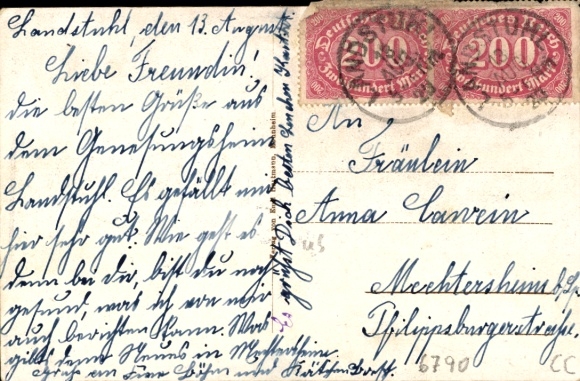 Landstuhl, den 13. August
Liebe Freundin!
die besten Grüße aus
dem Genesungsheim
Landstuhl. Es gefällt mir
hier sehr gut. Wie geht es
denn bei dir, bist du noch
gesund, was ich von mir
auch berichten kann. Was
gibts denn Neues in Mechtersheim
Gruß an Frau Böhm und Käthchen
Es grüßt Dich besten Lenchen
Deutsches Reich
200
Zweihundert Mark
Deutsches Reich
200
Zweihundert Mark
LANDSTUHL
LANDSTUHL
An
Fräulein
Anna
Mechtersheim b. Sp.
Philippsburgerstraße
6790
CC